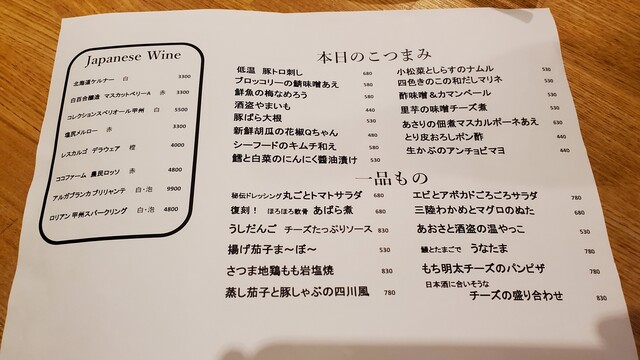 Japanese Wine
北海道ケルナー 白 3300
白百合醸造 マスカットベリーA 赤 3300
コレクションスペリオール甲州 白 5500
塩尻メルロー 赤 3300
レスカルゴ デラウェア 橙 4000
ココファーム 農民ロッソ 赤 4800
アルガブランカ ブリリャンテ 白・泡 9900
ロリアン 甲州スパークリング 白・泡 4800
本日のこつまみ
低温 豚トロ刺し 680
ブロッコリーの鯖味噌あえ 380
鮮魚の梅なめろう 580
酒盗やまいも 440
豚ばら大根 530
新鮮胡瓜の花椒Qちゃん 480
シーフードのキムチ和え 580
鱈と白菜のにんにく醤油漬け 530
小松菜としらすのナムル 530
四色きのこの和だしマリネ 530
酢味噌&カマンベール 530
里芋の味噌チーズ煮 530
あさりの佃煮マスカルポーネあえ 630
とり皮おろしポン酢 440
生かぶのアンチョビマヨ 440
一品もの
秘伝ドレッシング 丸ごとトマトサラダ 680
復刻! ほろほろ軟骨 あばら煮 680
うしだんご チーズたっぷりソース 830
揚げ茄子ま〜ぼ〜 530
さつま地鶏もも岩塩焼 830
蒸し茄子と豚しゃぶの四川風 780
エビとアボカドごろごろサラダ 780
三陸わかめとマグロのぬた 680
あおさと酒盗の温やっこ 530
鰻とたまごで うなたま 780
もち明太チーズのパンピザ 780
日本酒に合いそうな
チーズの盛り合わせ 830